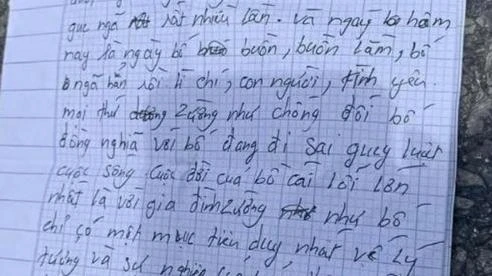 gục ngã rất nhiều lần. Và ngay hôm
nay là ngày bố buồn, buồn lắm, bố
ngã hẳn rồi lí chí, con người, tình yêu
mọi thứ dường như chống đối bố
đồng nghĩa với bố đang đi sai quy luật
cuộc sống cuộc đời của bố cái lỗi lớn
nhất là với gia đình dường như bố
chỉ có một mục tiêu duy nhất về lý
tưởng và sự nghiệp